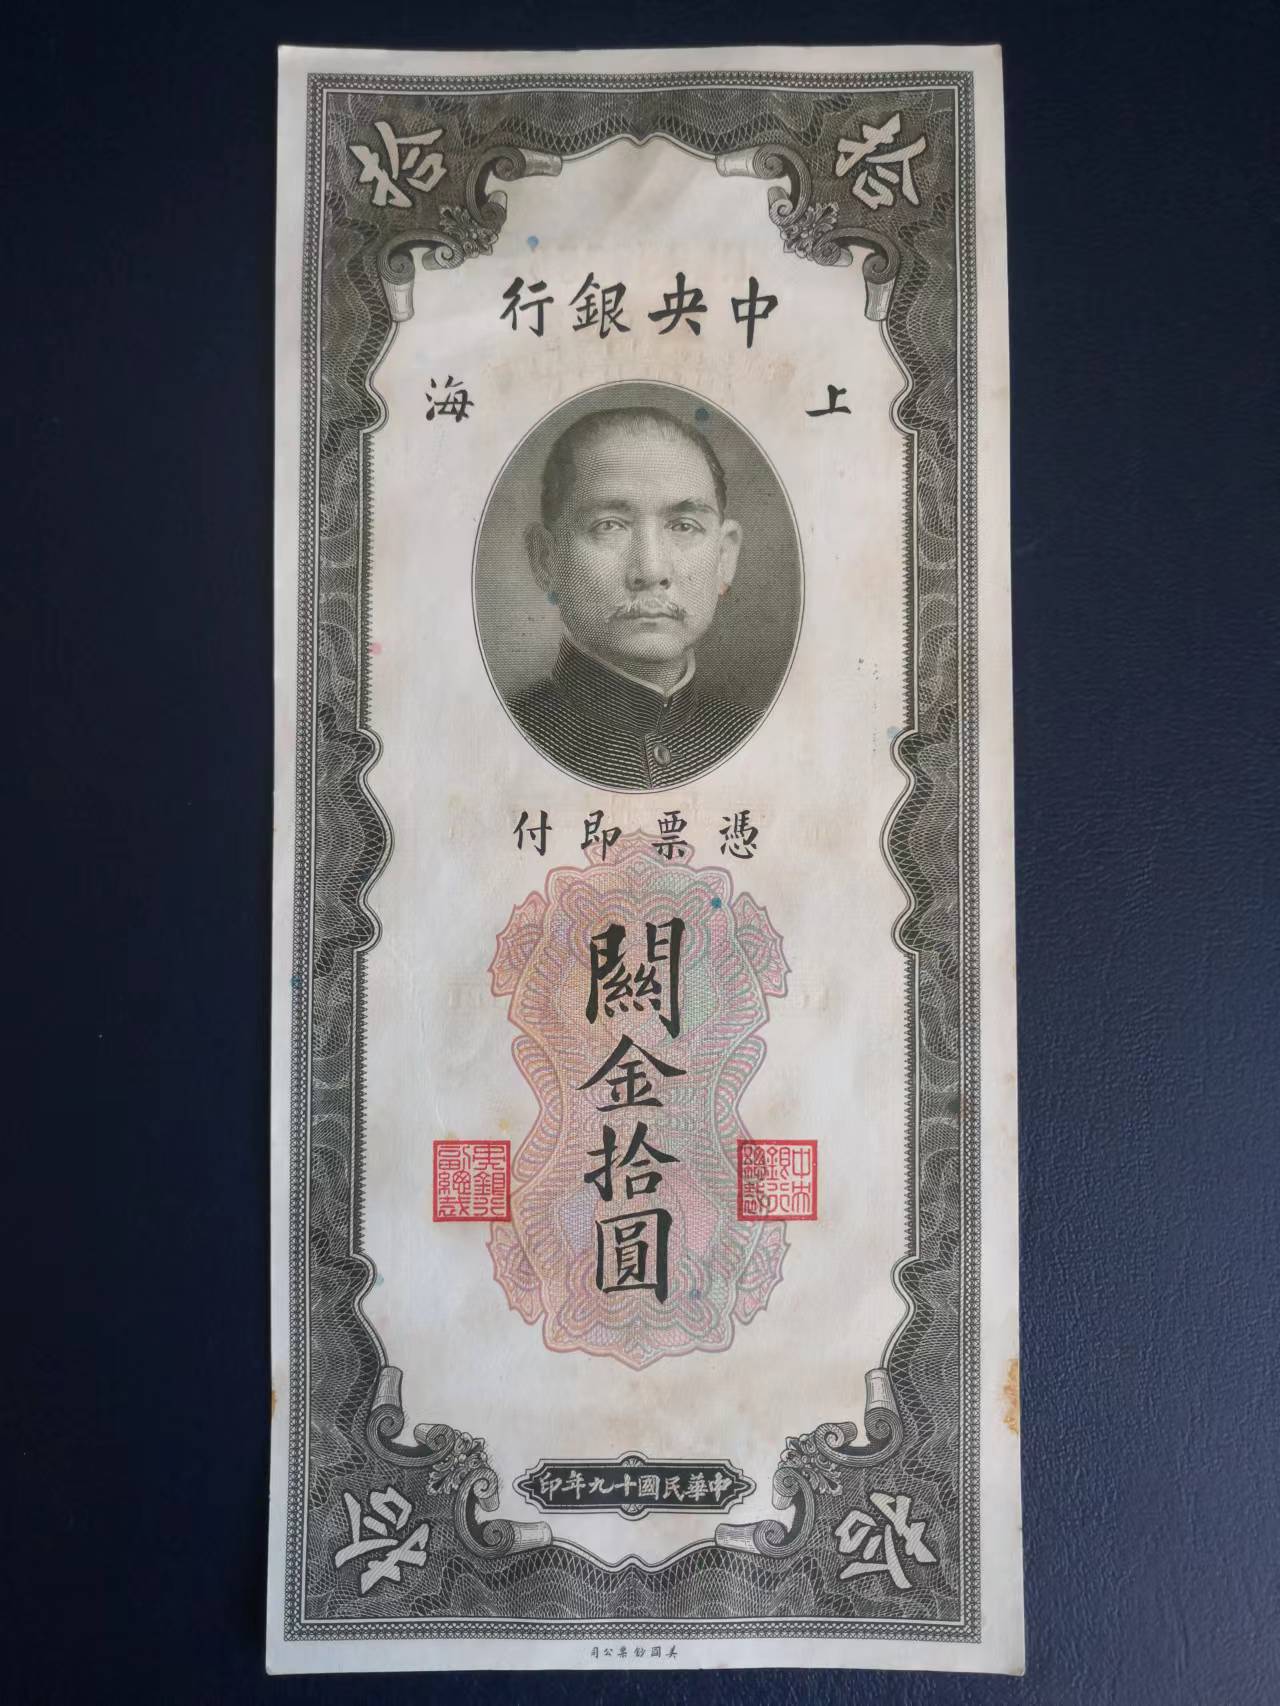 拾 拾
中央銀行
上海
憑票即付
關金拾圓
中央銀行總裁
央銀行副總裁
中華民國十九年印
拾 拾
美國鈔票公司